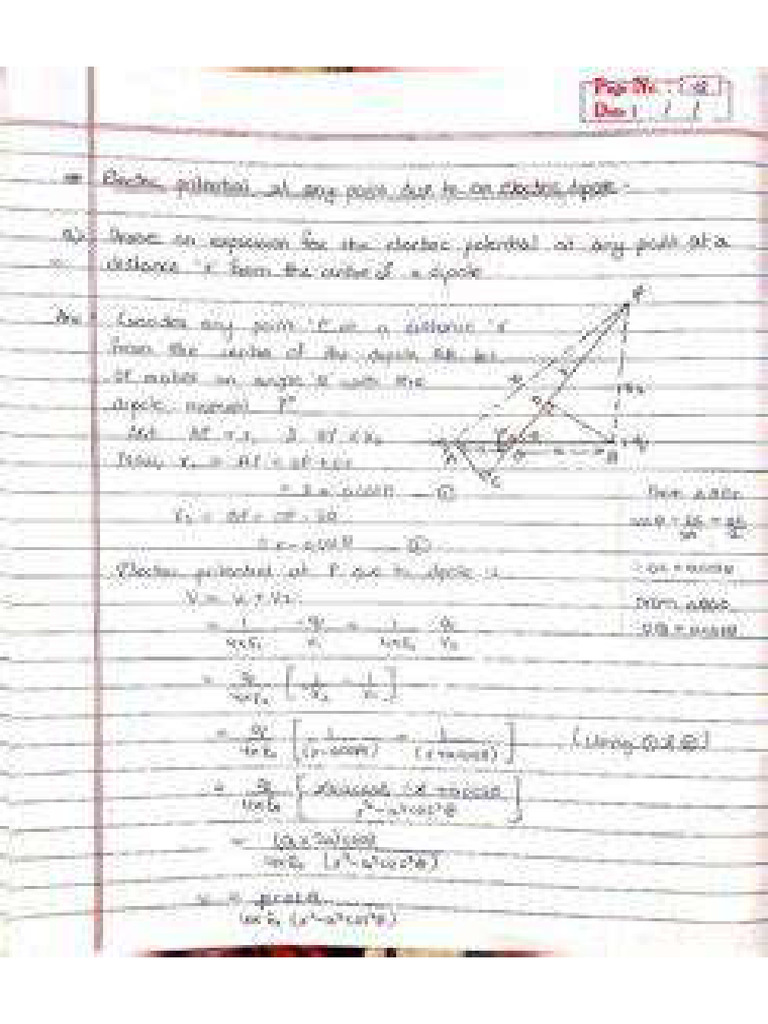 Page No. :
Date : / /
Electric potential at any point due to an electric dipole :-
Q) Derive an expression for the electric potential at any point at a
distance 'r' from the centre of a dipole
Ans : Consider any point 'P' at a distance 'r'
from the centre of the dipole AB. Let
OP makes an angle θ with the
dipole moment P
Let AP = r₁ & BP = r₂
Now, r₁ = AP = OP + OC
= r + a cosθ ①
r₂ = BP = OP - OD
= r - a cosθ ②
Electric potential at P due to dipole :
V = V₁ + V₂
= 1/4πε₀ -q/r₁ + 1/4πε₀ q/r₂
= q/4πε₀ [1/r₂ - 1/r₁]
= q/4πε₀ [1/(r-acosθ) - 1/(r+acosθ)] (Using ① & ②)
= q/4πε₀ r²-a²cos²θ
= (q x 2a)cosθ/4πε₀ (r²-a²cos²θ)
V = pcosθ/4πε₀ (r²-a²cos²θ)
P
A
O
B
C
a
From
cosθ =
OC = acosθ
From
OD = acosθ